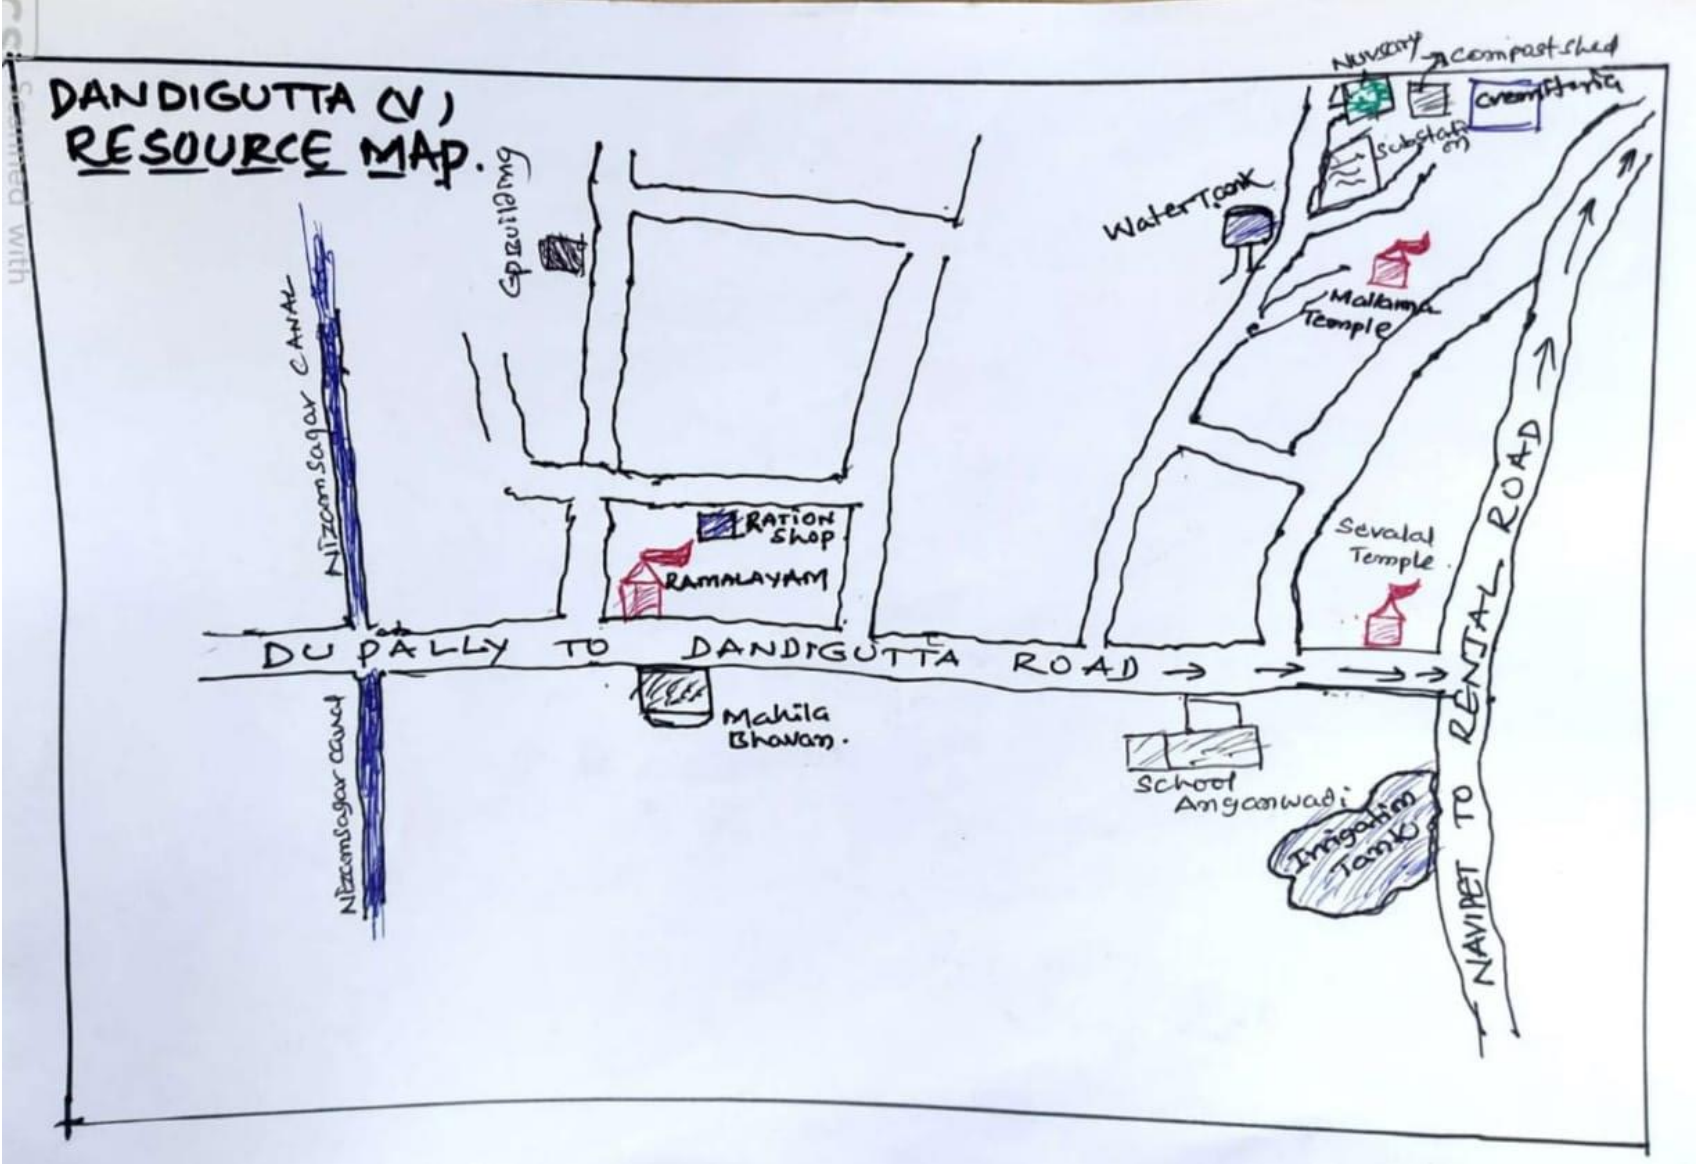 DANDIGUTTA (V)
RESOURCE MAP.
Nursary
Compast shed
Cremitoria
Substati
on
Water Tank
GP Building
Mallama
Temple
Nizamsagar CANAL
RATION
Shop
RAMALAYAM
Sevalal
Temple
DUPALLY TO DANDIGUTTA ROAD
Mahila
Bhavan.
School
Anganwadi
Irrigation
Tank
Nizamsagar canal
NAVIPET TO RENJAL ROAD
Scanned with